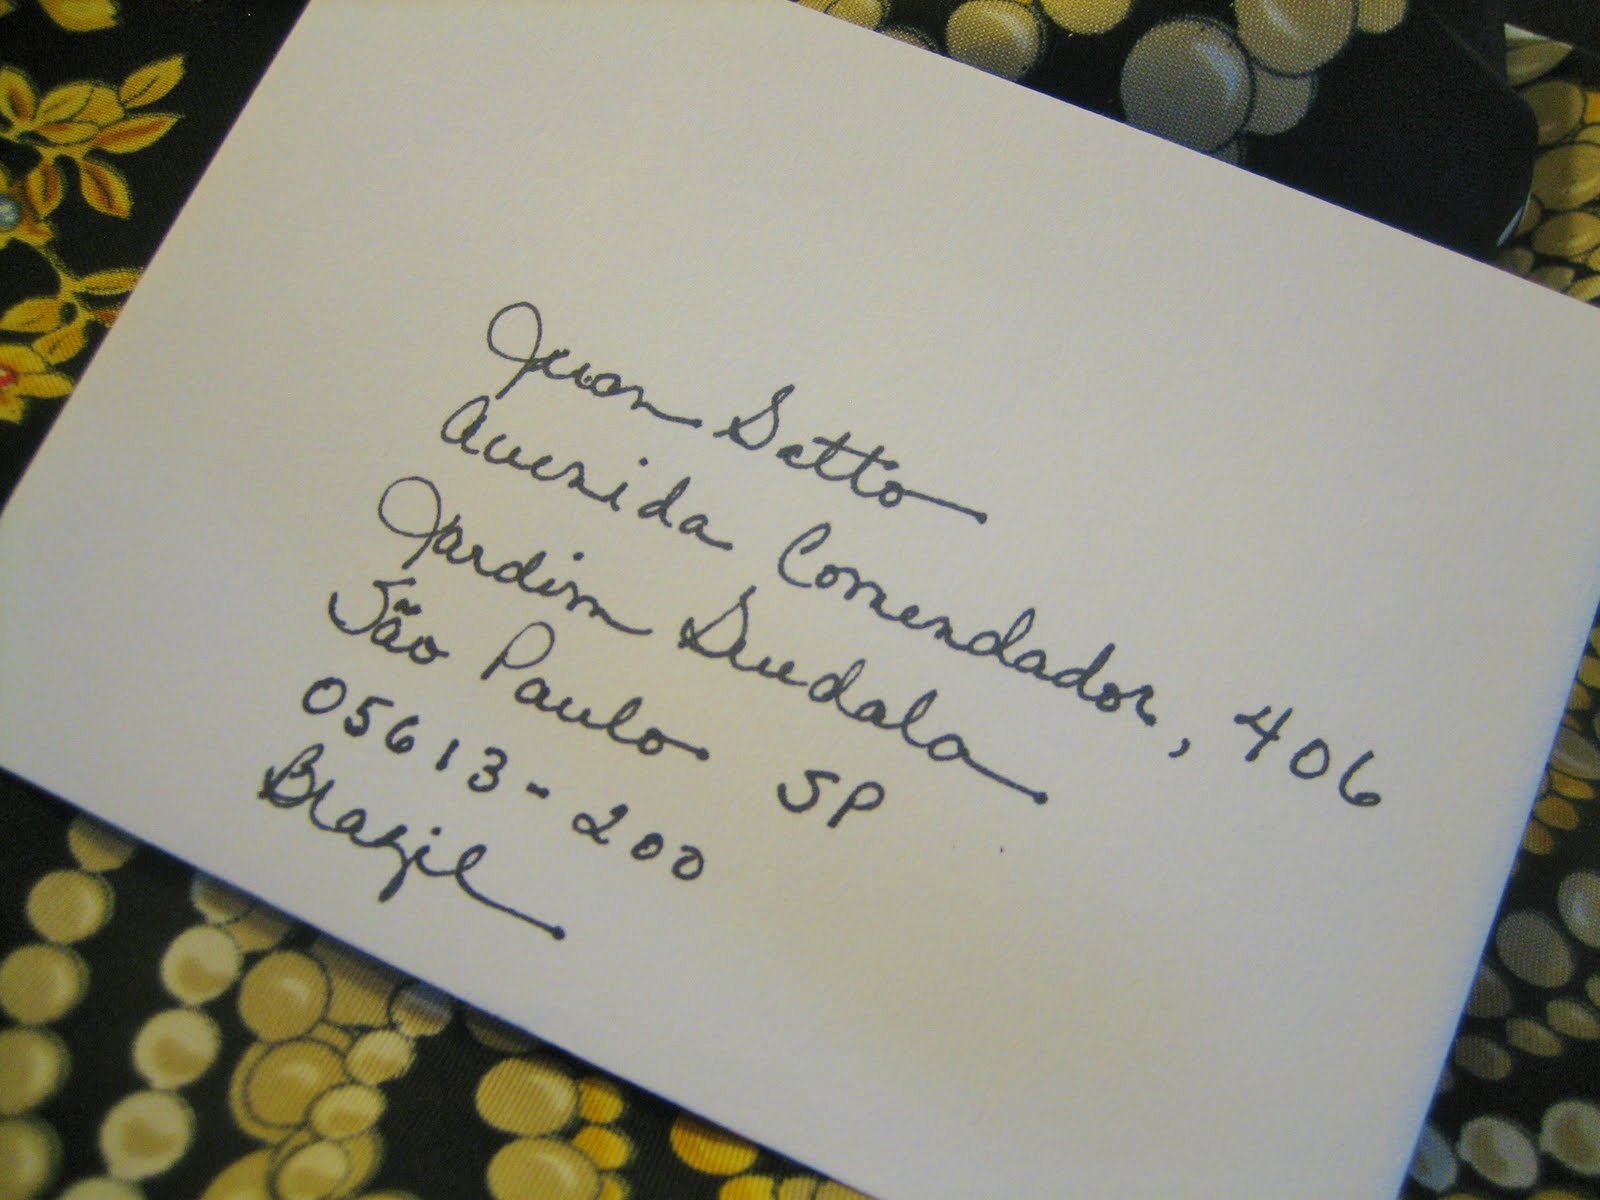 Juan Satto
Avenida Comendador, 406
Jardim Guedala
São Paulo SP
05613-200
Brazil